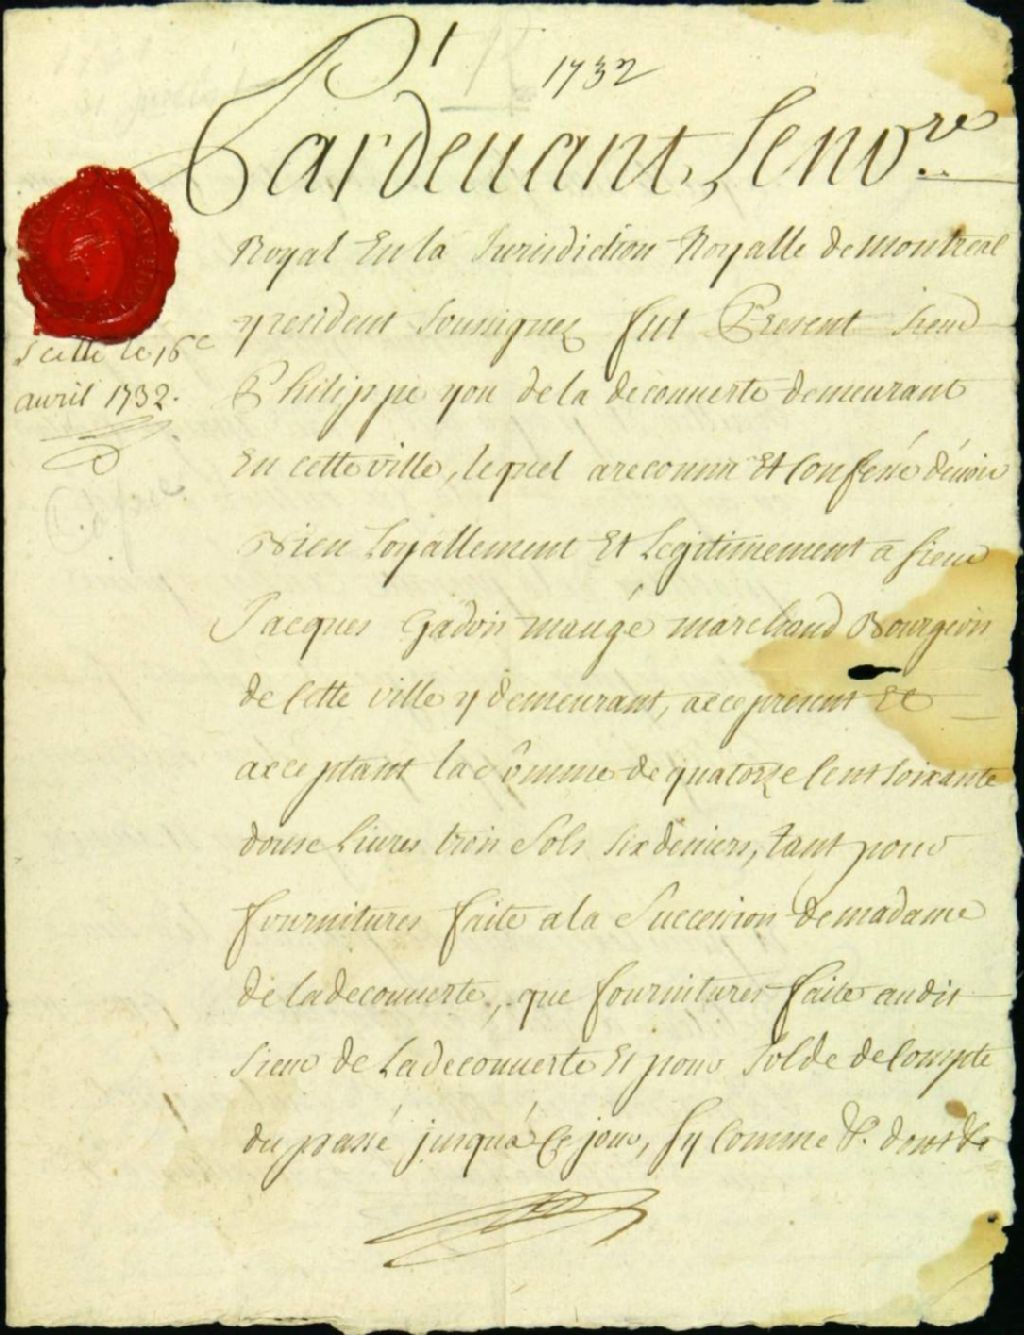 1732
Pardevant Le no.re
Royal En la Jurisdiction Royalle de montreal
y resident Soussignez fut Present Sieur
Philippe you de la decouverte demeurant
En cette ville, lequel a reconnu Et Confessé dévoir
Bien Loyallement Et Legitimement a Sieur
Jacques Gadois maugé marchand Bourgeois
de Cette ville y demeurant, a ce present Et
acceptant la sômme de quatorze Cent soixante
douse Livres trois Sols Six deniers, tant pour
fournitures faite a la Succession de madame
de la decouverte, que fournitures faite audit
Sieur de Ladecouverte Et pour Solde de Compte
du passé jusqu'a Ce jour, Sy comme &.
Scellé le 16e
avril 1732.